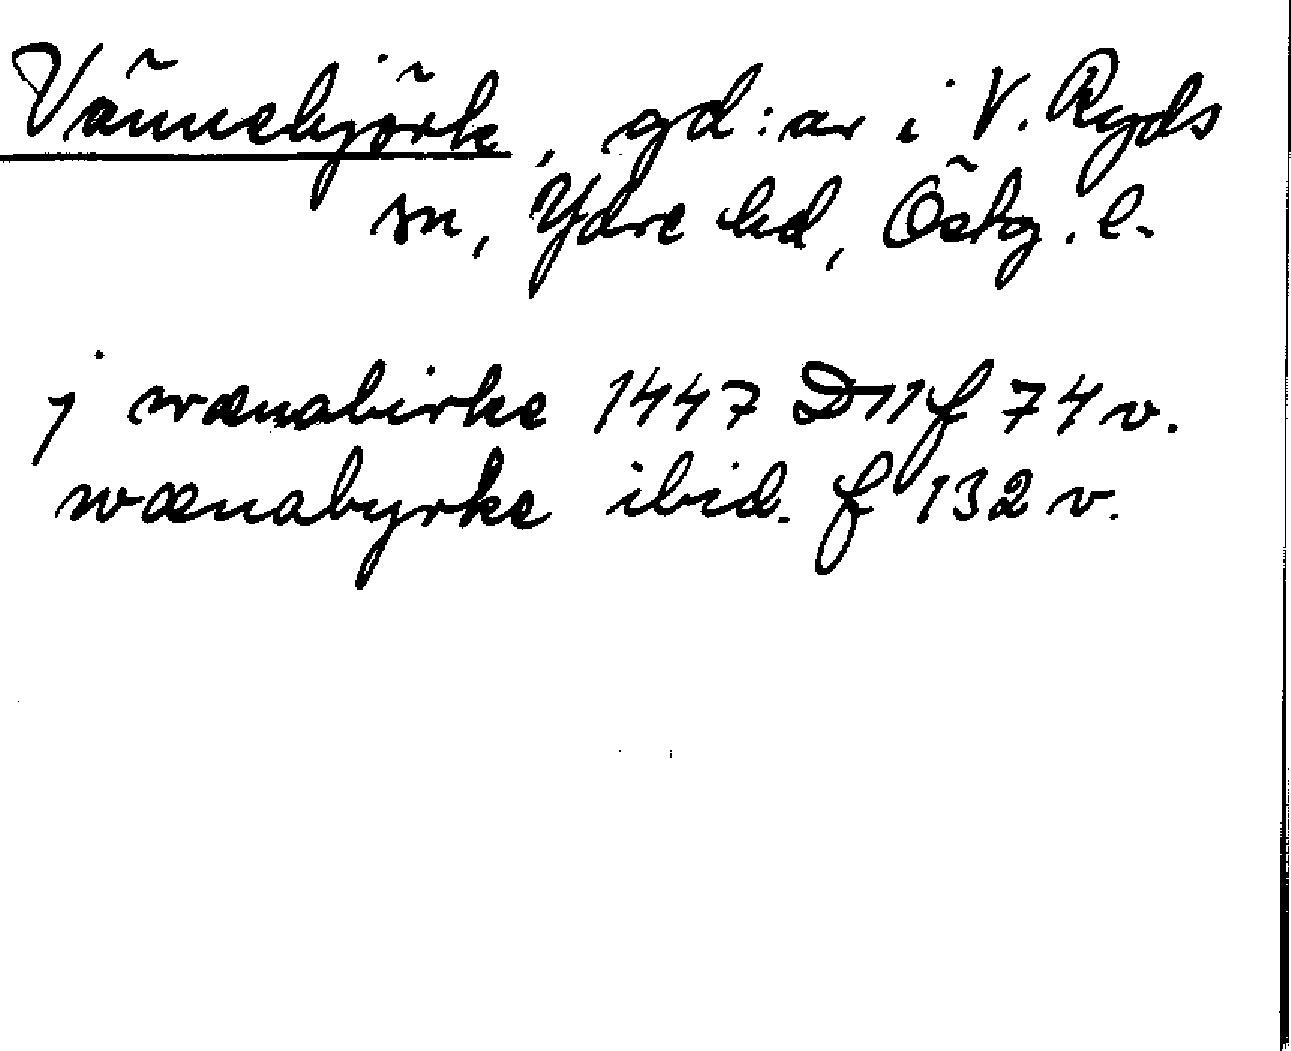 Vännebjörk, gd:ar i V. Ryds
sn, Ydre hd, Östg. l.
j wænabirke 1447 D 11 f 74 v.
wænabyrke ibid. f 132 v.